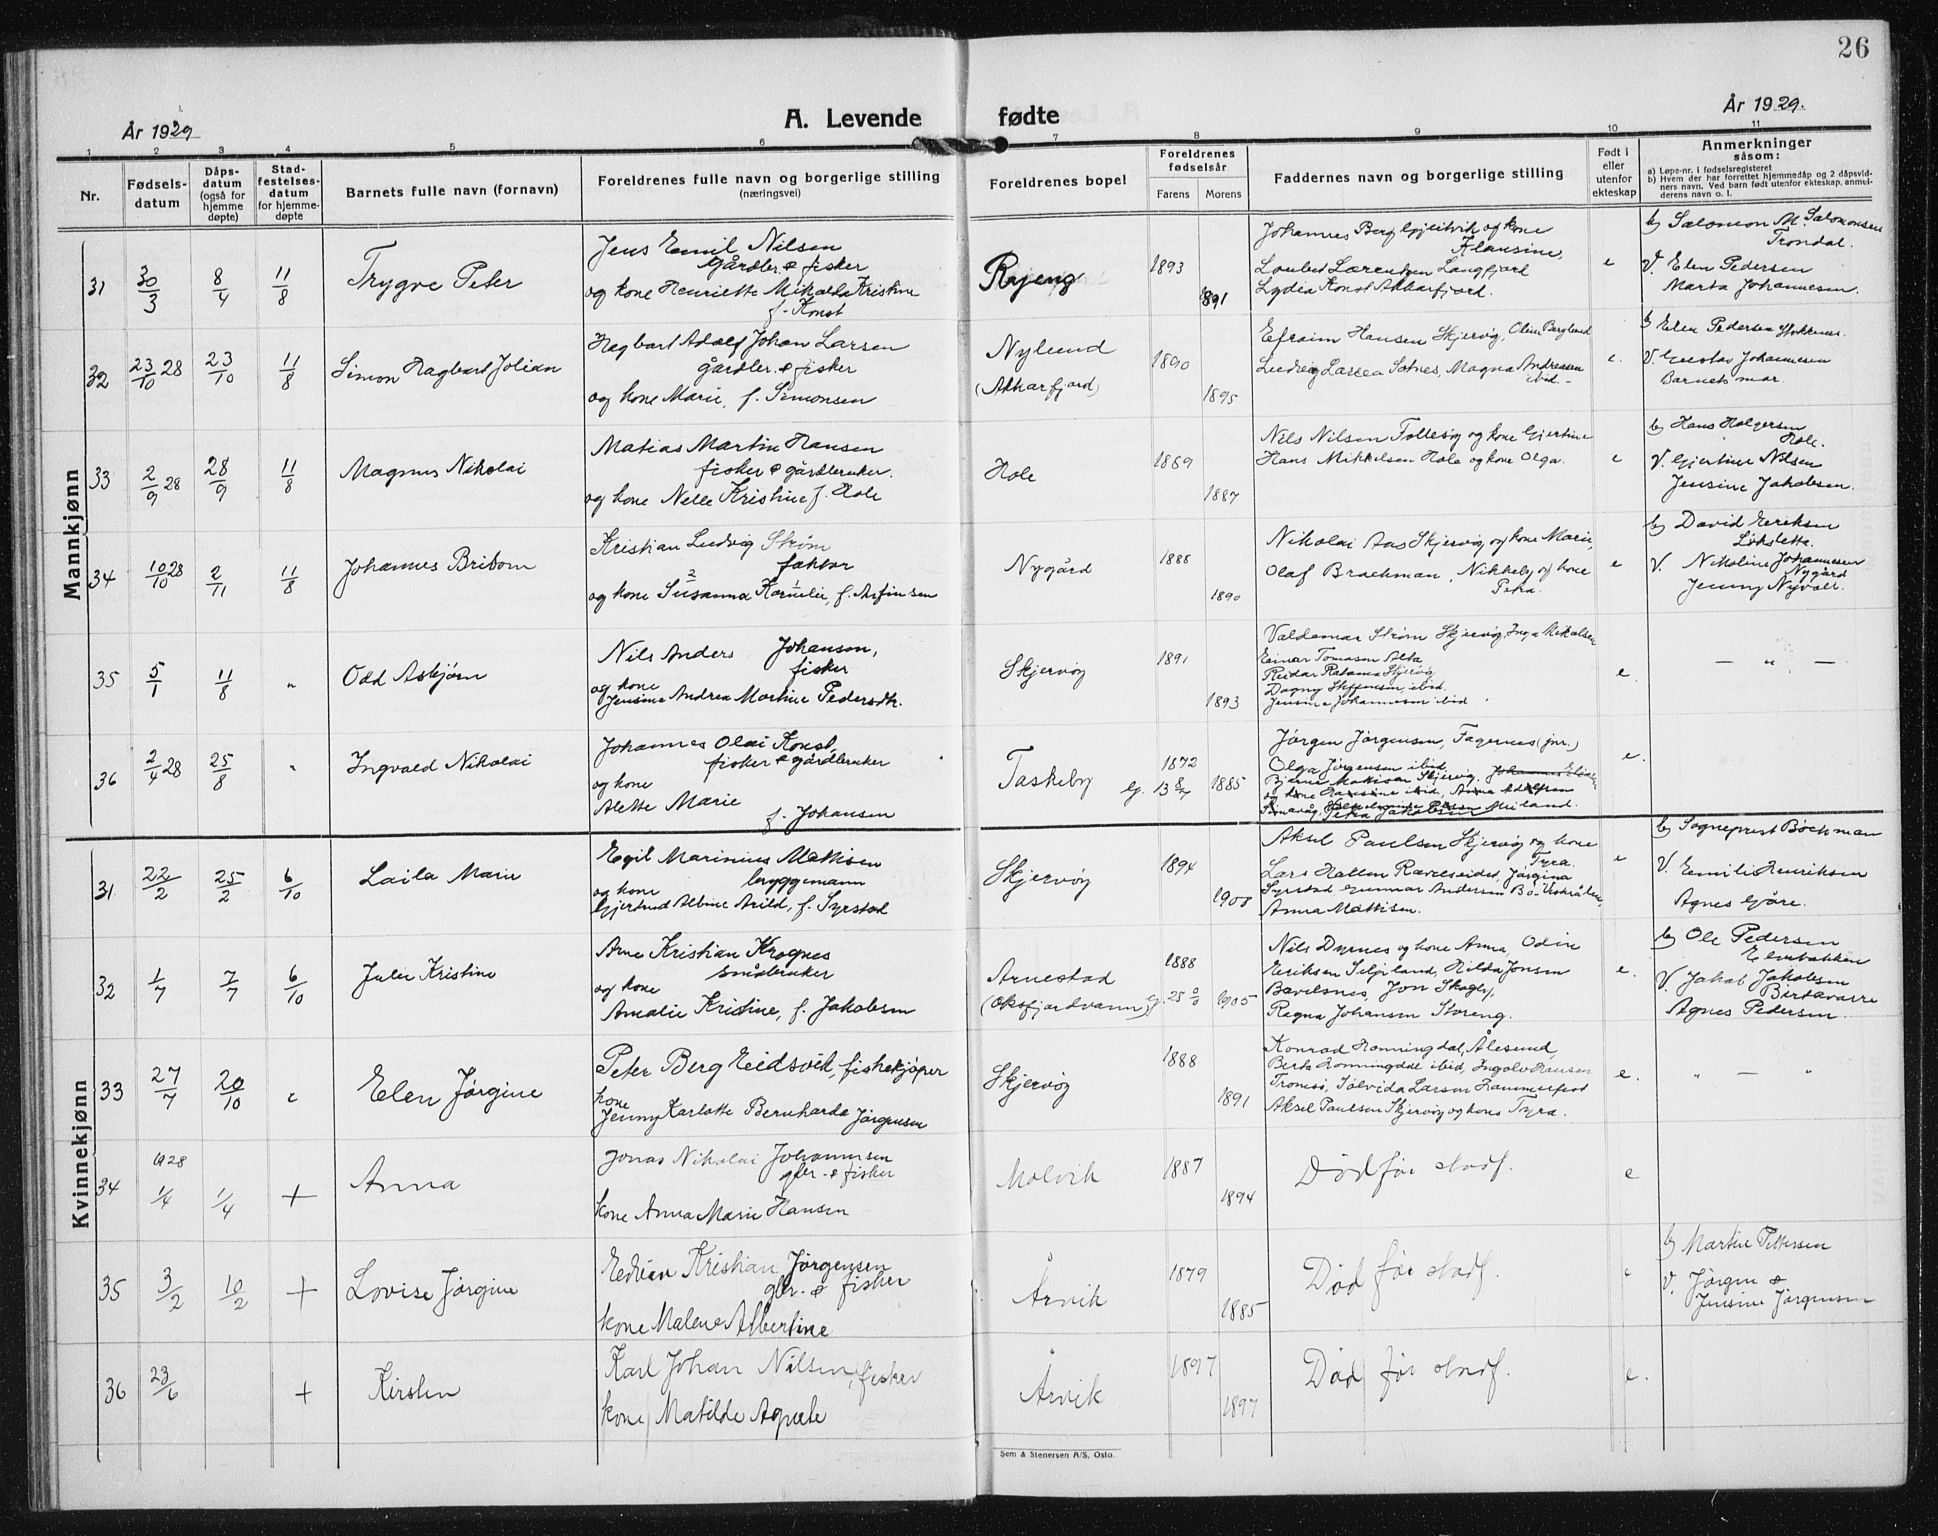 26
År 1929
A. Levende fødte
År 1929.
1 2 3 4 5 6 7 8 9 10 11
Nr.
Fødsels-
datum
Dåps-
datum
(også for
hjemme
døpte)
Stad-
festelses-
datum
for hjemme-
døpte
Barnets fulle navn (fornavn)
Foreldrenes fulle navn og borgerlige stilling
(næringsvei)
Foreldrenes bopel
Foreldrenes
fødselsår
Farens Morens
Faddernes navn og borgerlige stilling
Født i
eller
utenfor
ekteskap
Anmerkninger
såsom:
a) Løpe-nr. i fødselsregisteret
b) Hvem der har forrettet hjemmedåp og 2 dåpsvid-
ners navn. Ved barn født utenfor ekteskap, anmel-
derens navn o. l.
Mannkjønn
31 30/3 8/4 11/8 Trygve Peter
Jens Emil Nilsen
Gårdbr. & fisker
og kone Henriette Mikalda Kristine
f. Konst
1893
1891
Johannes Berg Gjeitvik og kone
Klausine,
Lorentsen Langfjord
Lydia Konst Akkarfjord.
e
b) Salomon M. Salomonsen
Trondal.
V. Elen Pedersen
Marta Johannesen.
32 23/10 28 23/10 11/8 Simon Hagbart Jolian
Hagbart Adolf Johan Larsen
gårdbr. & fisker
og kone Marie, f. Simonsen
Nylund
(Akkarfjord)
1890
1895
Efraim Hansen Skjervøy, Oline Berglund
Ludvig Larsen Sotnes, Magna Andreassen
ibid.
e.
b Elen Pedersen Stokknes
V. Gustav Johannesen
Barnets mor.
33 2/9 28 28/9 11/8 Magnus Nikolai
Matias Martin Hansen
fisker & gårdbruker.
og kone Nelle Kristine f. Hole
Hole
1889
1887
Nils Nilsen Follesøy og kone Gjertine
Hans Mikkelsen Hole og kone Olga.
e
b) Hans Holgersen
Hole.
V. Gjertine Nilsen
Jensine Jakobsen.
34 10/10 28 2/11 11/8 Johannes Britom
Kristian Ludvig Strøm
faktor
og kone Susanna Kornelie, f. Arfinsen
Nygård
1888
1890
Nikolai Aas Skjervøy og kone Marie,
Olaf Brackman, Nikkeby og kone
Petra.
e
b) David Eriksen
Lökslette.
V. Nikoline Johannesen
Nygård
Jenny Nyvoll.
35 5/1 11/8 " Odd Asbjørn
Nils Anders Johansen,
fisker
og kone
Jensine Andrea Martine Pedersdtr.
Skjervøy
1891
1893
Valdemar Strøm Skjervøy, Inga Mikalsen
Einar Tomasen Alta
Reidar Skjervøy
Dagny Steffensen, ibid,
Jensine Johannesen ibid
e.
— " —
36 2/4 28 25/8 " Ingvald Nikolai
Johannes Olai Konst,
fisker & gårdbruker
og kone
Alette Marie
f. Johansen
Taskeby
g. 13 8/7
1872
1885
Jørgen Jørgensen, Fagernes (jnr.)
Olga Jørgensen ibid.
Bjarne Mattisen Skjervøy.
Petra Jakobsen Meiland.
e.
Kvinnekjønn
31 22/2 25/2 6/10 Laila Marie
Egil Marinius Mattisen
bryggemann
og kone
Gjertrud Albine Arild, f. Syrstad
Skjervøy
1894
Aksel Paulsen Skjervøy og kone
Tyra.
Lars Hallen Ravelseidet, Jørgina
Syrstad Gunnar Andersen Bø Vesterålen,
Anna Mattisen.
e
b) Sogneprest Bøckman
V. Emilie Henriksen
Agnes Gåre.
32 1/7 7/7 6/10 Julie Kristine
Arne Kristian Krognes
småbruker
og kone
Amalie Kristine, f. Jakobsen
Arnestad
(Oksfjordvann)
1888
1905
Nils Dyrnes og kone Anna, Odin
Eriksen Seljeland, Hilda Jonsen
Bævelsnes, Jon Skogly,
Ragna Johansen Storeng.
e.
b) Ole Pedersen
Elvebakken
V. Jakob Jakobsen
Birtavarre
Agnes Pedersen.
33 27/7 20/10 " Elen Jørgine
Peter Berg Eidsvik, fiskekjøper
kone
Jenny Karlotte Bernharda Jørgensen
Skjervøy
1888
1891
Konrad Honningdal, Ålesund,
Berta Honningdal ibid, Ingolv Hansen
Tromsö, Solvida Larsen Hammerfest
Aksel Paulsen Skjervøy og kone Tyra.
e.
" — "
34 1928 1/4 1/4 + Anna
Jonas Nikolai Johannesen
gbr. & fisker
kone Anna Marie Hansen
Molvik
1887
1894
Død før stadf.
e
35 3/2 10/2 + Lovise Jørgine
Edvin Kristian Jørgensen
gbr. & fisker
kone Malene Albertine
Årvik
1879
1885
Død før stadf.
e
b) Martin Pettersen
V. Jørgen &
Jensine Jørgensen
36 23/6 + Kirsten
Karl Johan Nilsen, fisker
kone Matilde Agnete
Årvik
1897
1897
Død før stadf.
e.
Sem & Stenersen A/S, Oslo.